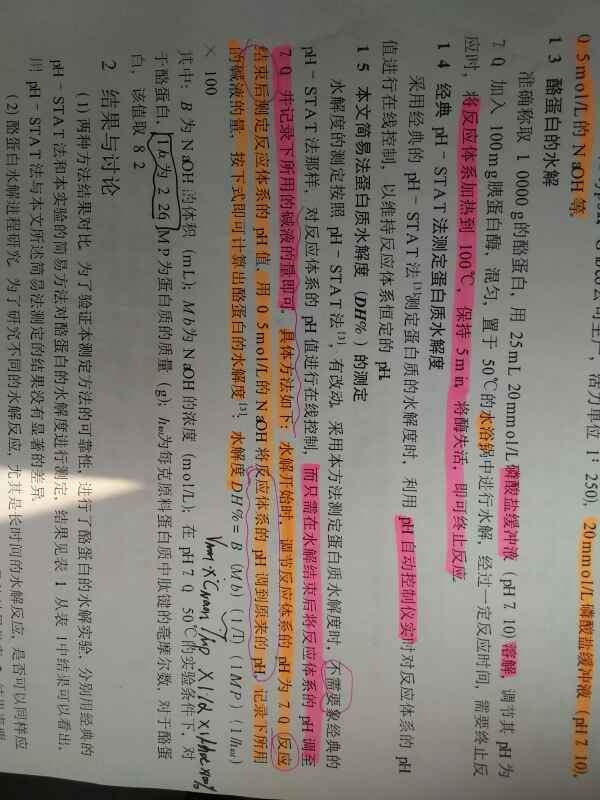 公司生产, 活力单位 1: 250), 20mmol/L 磷酸盐缓冲液 (pH 7 10),
0 5mol/L 的 NaOH 等.
1 3 酪蛋白的水解
准确称取 1 0000g的酪蛋白, 用 25mL 20mmol/L 磷酸盐缓冲液 (pH 7 10) 溶解, 调节其 pH 为
7 0, 加入 100mg胰蛋白酶, 混匀, 置于 50℃的水浴锅中进行水解, 经过一定反应时间, 需要终止反
应时, 将反应体系加热到 100℃, 保持 5 min, 将酶失活, 即可终止反应
1 4 经典 pH-STAT法测定蛋白质水解度
采用经典的 pH-STAT法[3]测定蛋白质的水解度时, 利用 pH自动控制仪实时对反应体系的 pH
值进行在线控制, 以维持反应体系恒定的 pH.
1 5 本文简易法蛋白质水解度 (DH%) 的测定
水解度的测定按照 pH-STAT法[3], 有改动. 采用本方法测定蛋白质水解度时, 不需要象经典的
pH-STAT法那样, 对反应体系的 pH 值进行在线控制, 而只需在水解结束后将反应体系的 pH 调至
7 0, 并记录下所用的碱液的量即可. 具体方法如下: 水解开始时, 调节反应体系的 pH 为 7 0, 反应
结束后测定反应体系的 pH 值, 用 0 5mol/L 的 NaOH 将反应体系的 pH 调到原来的 pH, 记录下所用
的碱液的量, 按下式即可计算出酪蛋白的水解度[3]: 水解度 DH% = B (Mb) (1/D) (1MP) (1/htot)
× 100
其中: B 为 NaOH 的体积 (mL); Mb为 NaOH 的浓度 (mol/L); 在 pH 7 0, 50℃的实验条件下, 对
于酪蛋白, 1/b 为 2 26; MP 为蛋白质的质量 (g); htot为每克原料蛋白质中肽键的毫摩尔数, 对于酪蛋
白, 该值取 8 2
2 结果与讨论
(1) 两种方法结果对比. 为了验证本测定方法的可靠性, 进行了酪蛋白的水解实验, 分别用经典的
pH-STAT法和本实验的简易方法对酪蛋白的水解度进行测定, 结果见表 1. 从表 1中结果可以看出,
用 pH-STAT法与本文所述简易法测定的结果没有显著的差异.
(2) 酪蛋白水解进程研究. 为了研究不同的水解反应, 尤其是长时间的水解反应, 是否可以同样应